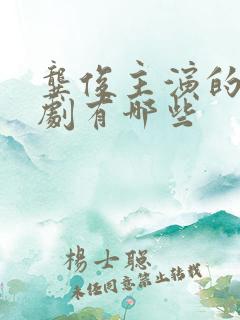 龔俊主演的
劇有哪些
楊士聰
未經同意禁止轉載